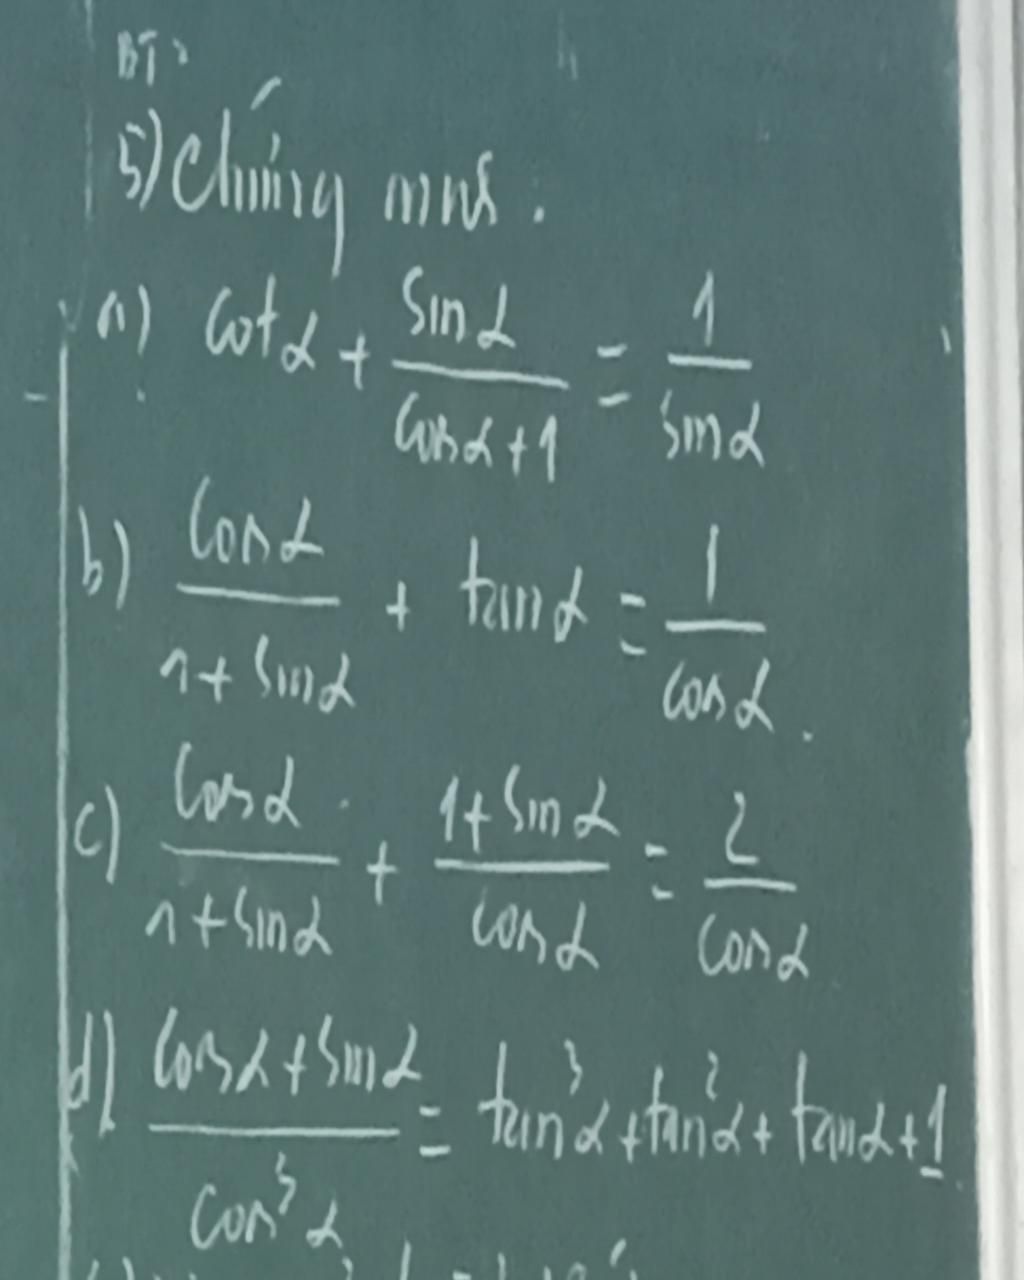 BT:
5) Chứng minh:
a) cot α + sin α / (cos α + 1) = 1 / sin α
b) cos α / (1 + sin α) + tan α = 1 / cos α.
c) cos α / (1 + sin α) + (1 + sin α) / cos α = 2 / cos α
d) (cos α + sin α) / cos³ α = tan³ α + tan² α + tan α + 1